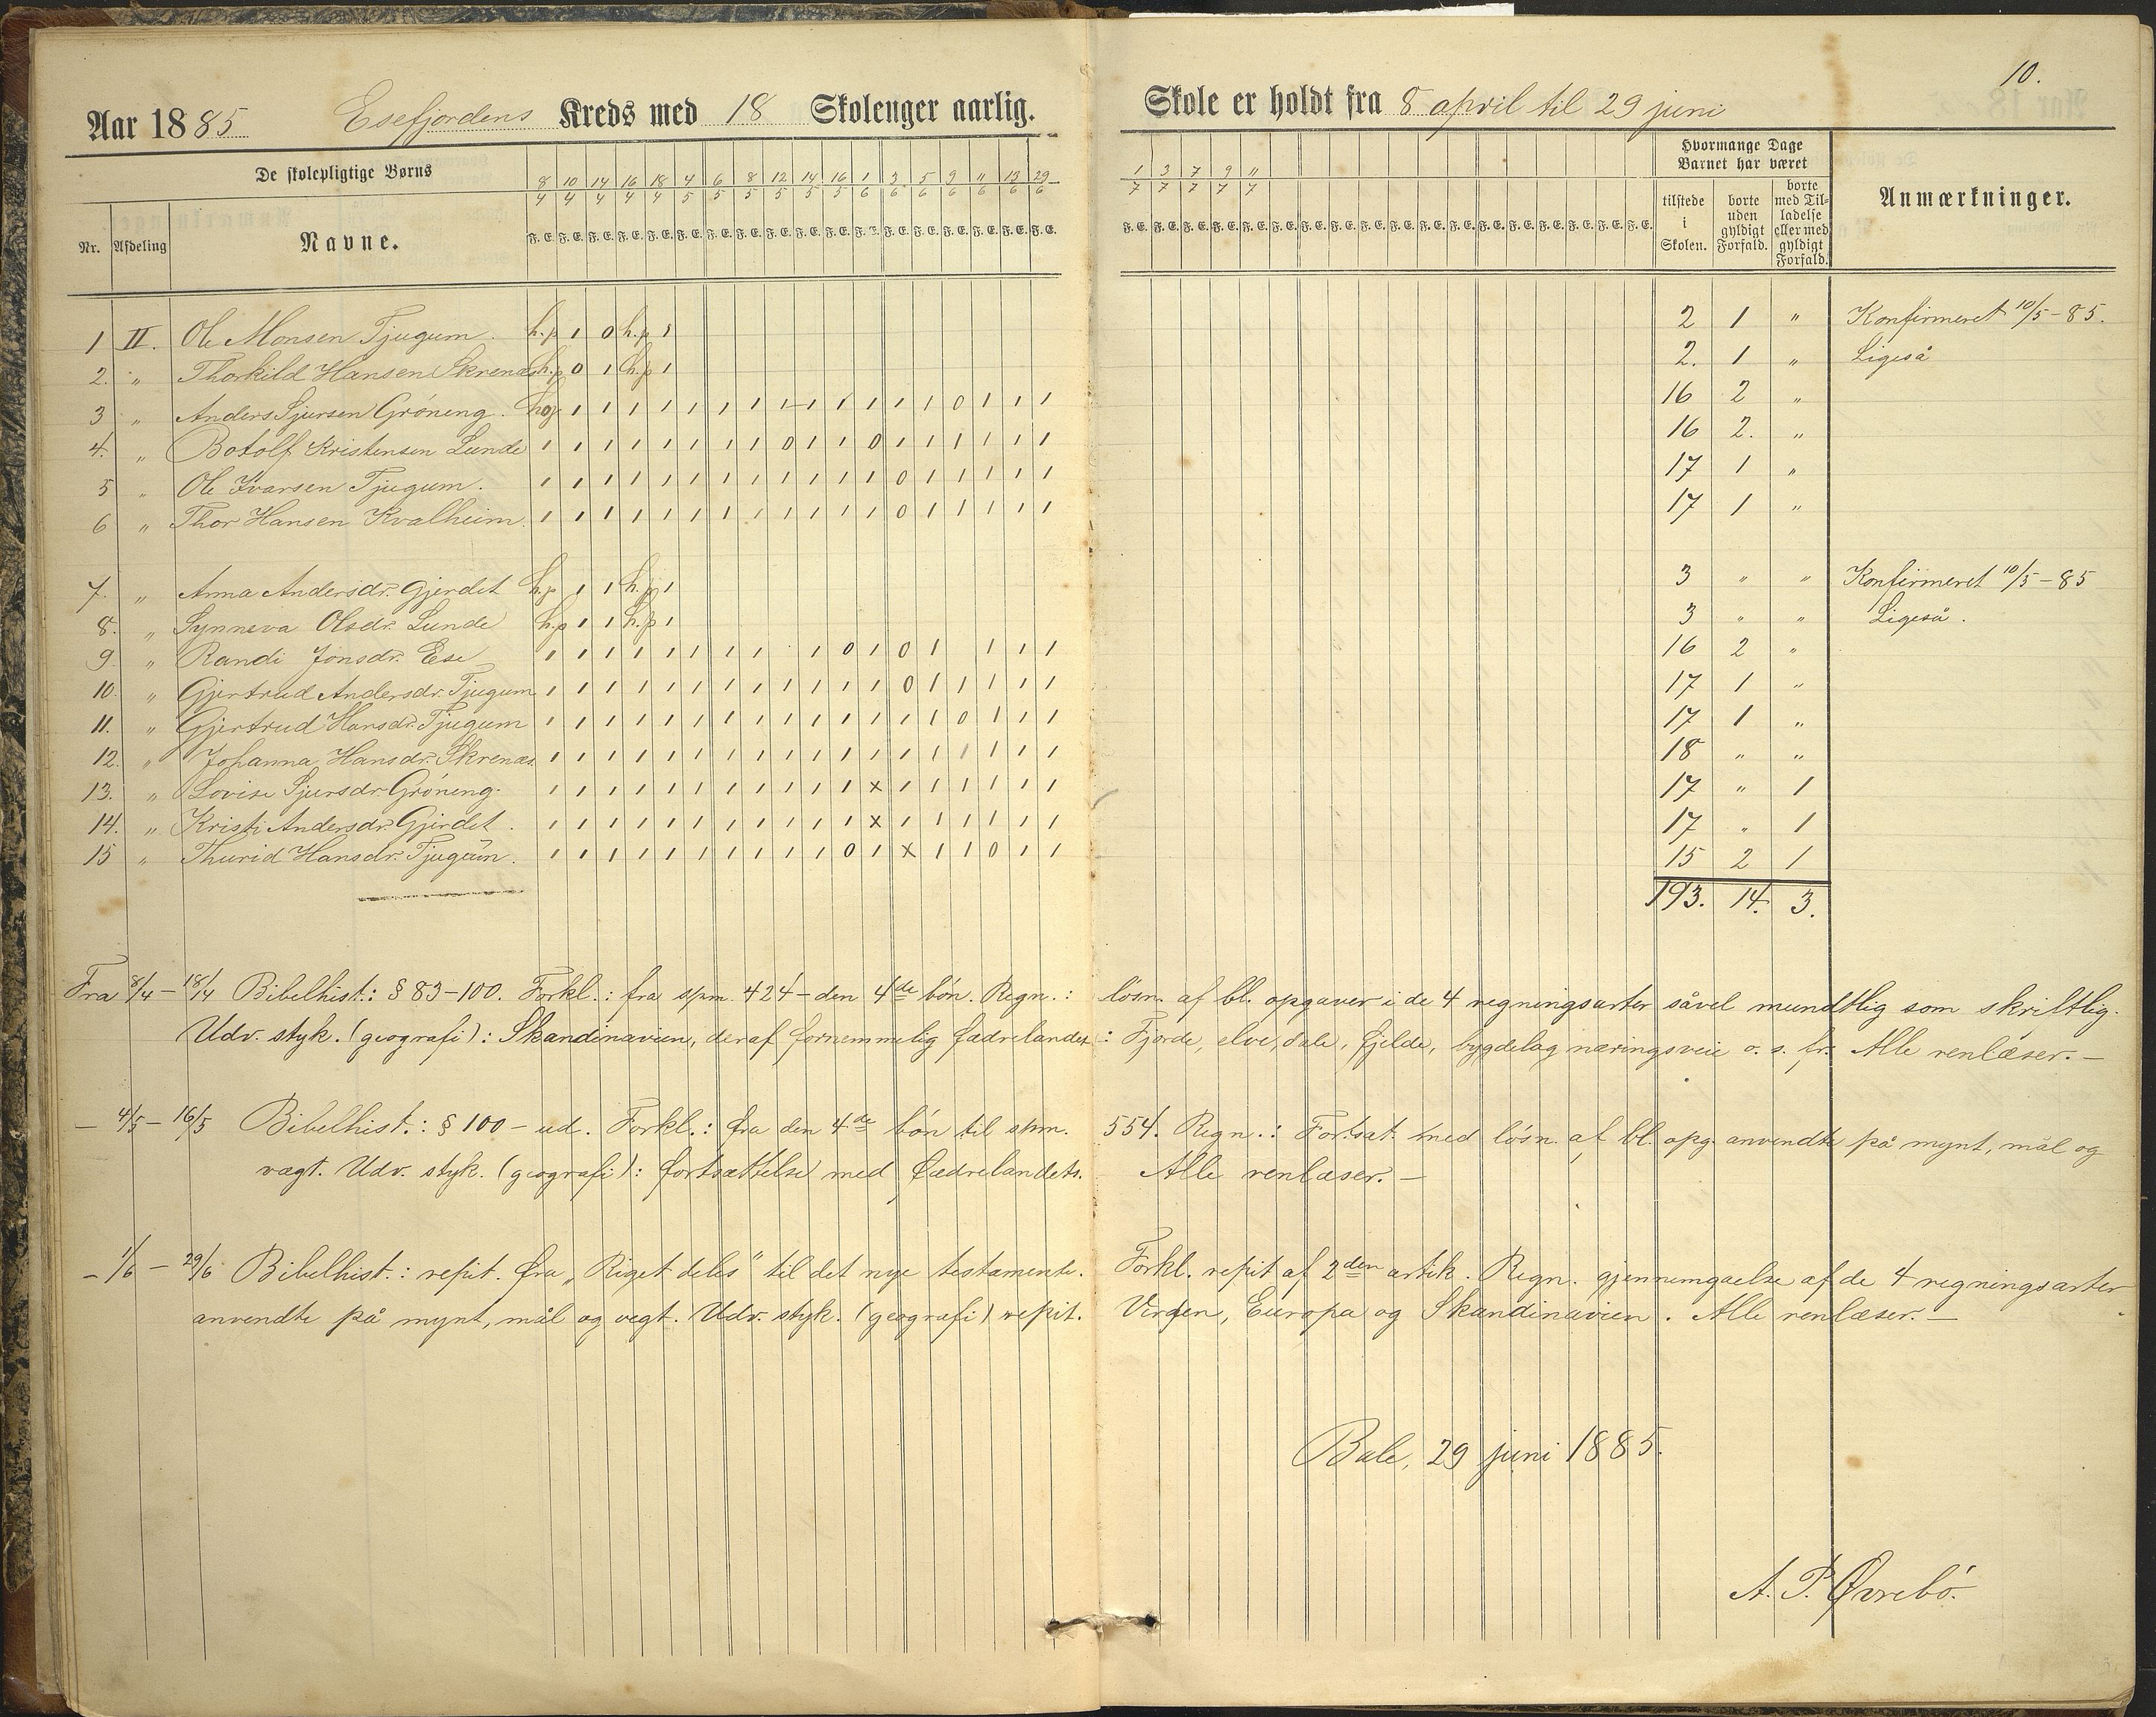 10.
Aar 1885 Esefjordens Kreds med 18 Skolenger aarlig. Skole er holdt fra 8 april til 29 juni
De skolepligtige Børns
Hvormange Dage Barnet har været
Nr. Afdeling Navne.
8/4 10/4 14/4 16/4 18/4 4/5 6/5 8/5 12/5 14/5 16/5 1/6 3/6 5/6 9/6 11/6 13/6 29/6 1/7 3/7 7/7 9/7 11/7
F. E. F. E. F. E. F. E. F. E. F. E. F. E. F. E. F. E. F. E. F. E. F. E. F. E. F. E. F. E. F. E. F. E. F. E.
tilstede i Skolen. borte uden gyldigt Forfald. borte med Tilladelse eller med gyldigt Forfald. Anmærkninger.
1 II. Ole Monsen Tjugum. h.p 1 0 h.p 1 2 1 " Konfirmeret 10/5-85.
2. " Thorkild Hansen Skrenæs h.p 0 1 h.p 1 2. 1 " Ligeså
3 " Anders Sjursen Gröneng. 16 2 "
4. " Botolf Kristensen Lunde 1 1 1 1 1 1 1 1 0 1 1 0 1 1 1 1 1 1 16 2. "
5 " Ole Ivarsen Tjugum. 1 1 1 1 1 1 1 1 1 1 1 1 0 1 1 1 1 1 17 1 "
6 " Thor Hansen Kvalheim. 1 1 1 1 1 1 1 1 1 1 1 1 0 1 1 1 1 1 17 1 "
7. " Anna Andersdr. Gjerdet h.p 1 1 h.p 1 3 " " Konfirmeret 10/5-85
8. " Synneva Olsdr. Lunde h.p 1 1 h.p 1 3 " " Ligeså.
9. " Randi Jonsdr. Ese 1 1 1 1 1 1 1 1 1 0 1 0 1 1 1 1 16 2 "
10. " Gjertrud Andersdr. Tjugum 1 1 1 1 1 1 1 1 1 1 1 1 0 1 1 1 1 1 17 1 "
11. " Gjertrud Hansdr. Tjugum 1 1 1 1 1 1 1 1 1 1 1 1 1 1 0 1 1 1 17 1 "
12. " Johanna Hansdr. Skrenæs. 1 1 1 1 1 1 1 1 1 1 1 1 1 1 1 1 1 1 18 " "
13. " Lovise Sjursdr. Gröneng. 1 1 1 1 1 1 1 1 1 1 1 x 1 1 1 1 1 1 17 " 1
14. " Kristi Andersdr. Gjerdet. 1 1 1 1 1 1 1 1 1 1 1 x 1 1 1 1 1 1 17 " 1
15 " Thurid Hansdr. Tjugum. 1 1 1 1 1 1 1 1 1 1 0 1 x 1 1 0 1 1 15 2 1
193. 14. 3.
Fra 8/4 - 18/4 Bibelhist.: § 83-100. Forkl.: fra spm. 424 - den 4de bön. Regn.: lösn. af bl. opgaver i de 4 regningsarter såvel mundtlig som skriftlig.
Udv. styk. (geografi): Skandinavien, deraf fornemmelig fædrelandet: Fjorde, elve, dale, fjelde, bygdelag næringsveie o. s. fr. Alle renlæser. —
— 4/5 - 16/5 Bibelhist.: § 100 - ud. Forkl.: fra den 4de bön til spm. 554. Regn.: Fortsat med lösn. af bl. opg. anvendte på mynt, mål og
vægt. Udv. styk. (geografi): fortsættelse med fædrelandets. Alle renlæser. —
— 1/6 — 29/6 Bibelhist.: repit. fra „Riget deles" til det nye testamente. Forkl. repit af 2den artik. Regn. gjennemgaelse af de 4 regningsarter
anvendte på mynt, mål og vegt. Udv. styk. (geografi) repit. Verden, Europa og Skandinavien. Alle renlæser. —
Bale, 29 juni 1885.
A. P. Øvrebö.